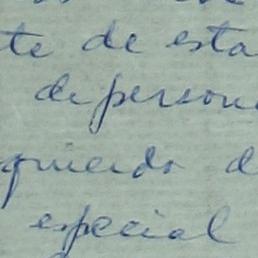 te de esta
de person
quierdo d
especial